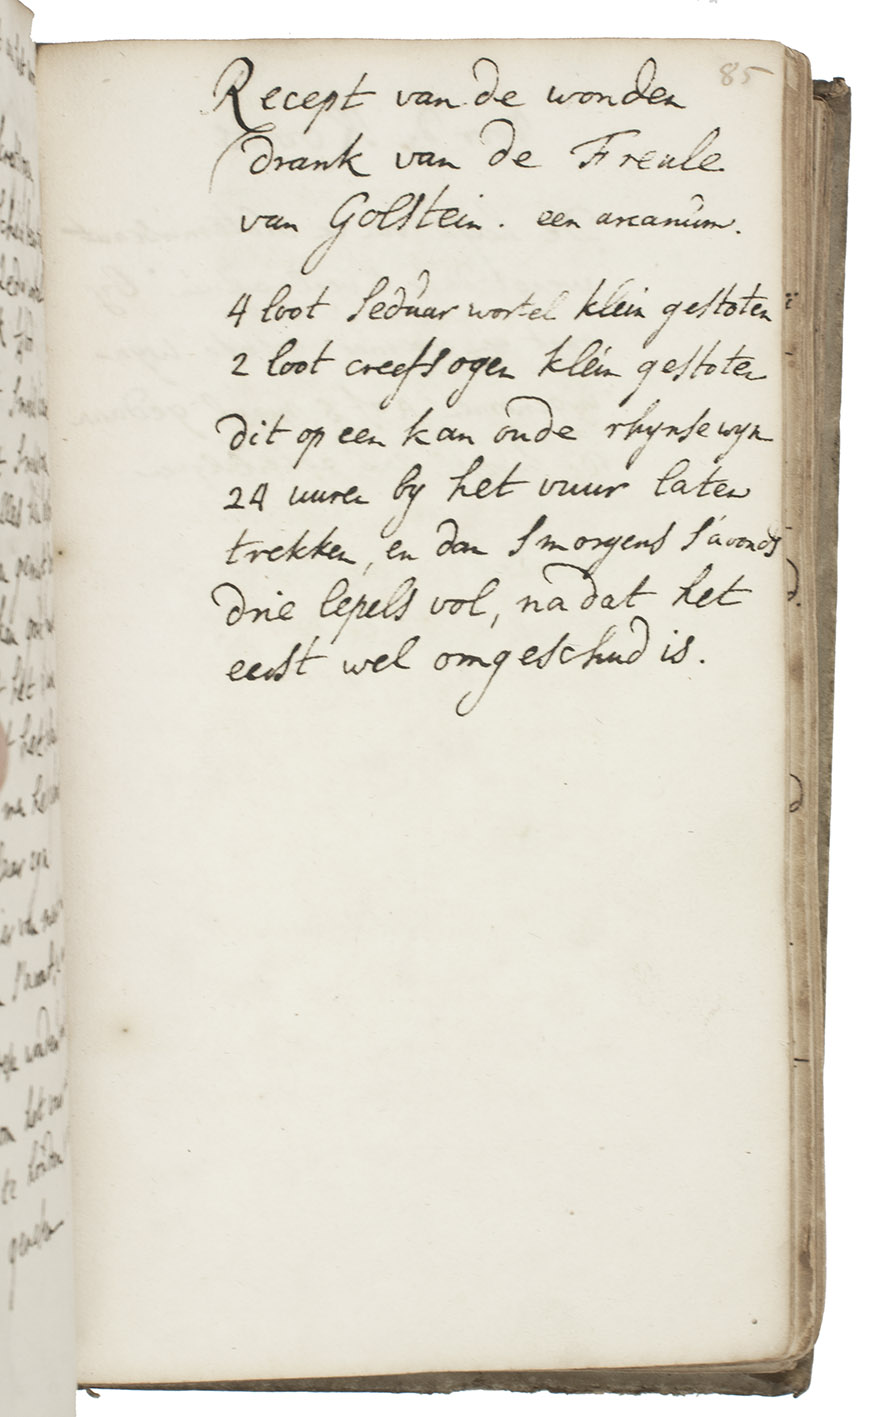 85
Recept van de wonden
drank van de Freule
van Golstein. een arcanum.
4 loot seduar wortel klein gestoten
2 loot creefs ogen klein gestoten
dit op een kan oude rhynse wyn
24 uuren by het vuur laten
trekken, en dan smorgens s'avonds
drie lepels vol, na dat het
eerst wel omgeschud is.